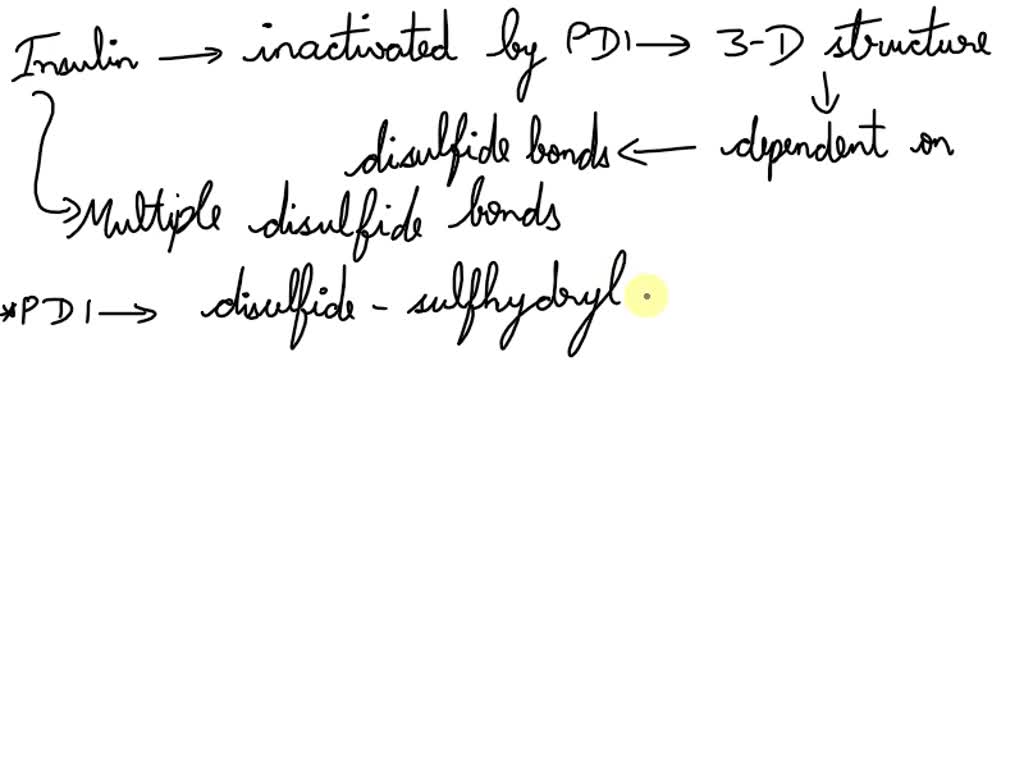 Insulin → inactivated by PDI → 3-D structure
↓
disulfide bonds ← dependent on
Multiple disulfide bonds
*PDI → disulfide - sulfhydryl